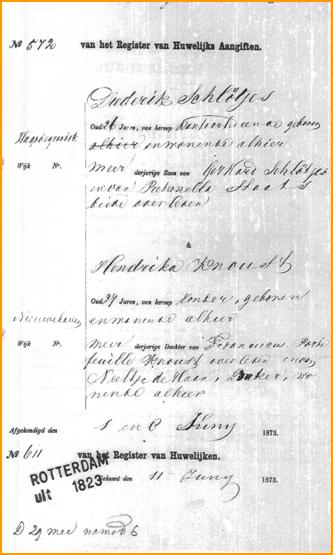 No 572 van het Register van Huwelijks Aangiften.
Diderik Schlötjes
Oud 26 Jaren, van beroep geboren
alhier en wonende alhier
Wijk Nr.
meer derjarige Zoon van Gerhard Schlötjes
en van Petronella Staats
beide overleden
&
Hendrika Knoust
Oud 37 Jaren, van beroep zonder, geboren
en wonende alhier
Wijk Nr.
meer derjarige Dochter van Franciscus
Knoust overleden en van
Neeltje de Haan, wo
nende alhier
Afgekondigd den 1 en 8 Juny 1873.
No 611 van het Register van Huwelijken.
Gehuwd den 11 Juny 1873.
ROTTERDAM
uit 1823
D 29 mei